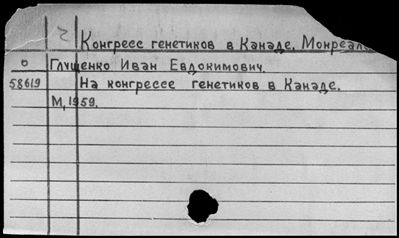 2 Конгресс генетиков в Канаде, Монреал
0 Глущенко Иван Евдокимович.
58619 На конгрессе генетиков в Канаде.
М, 1959.